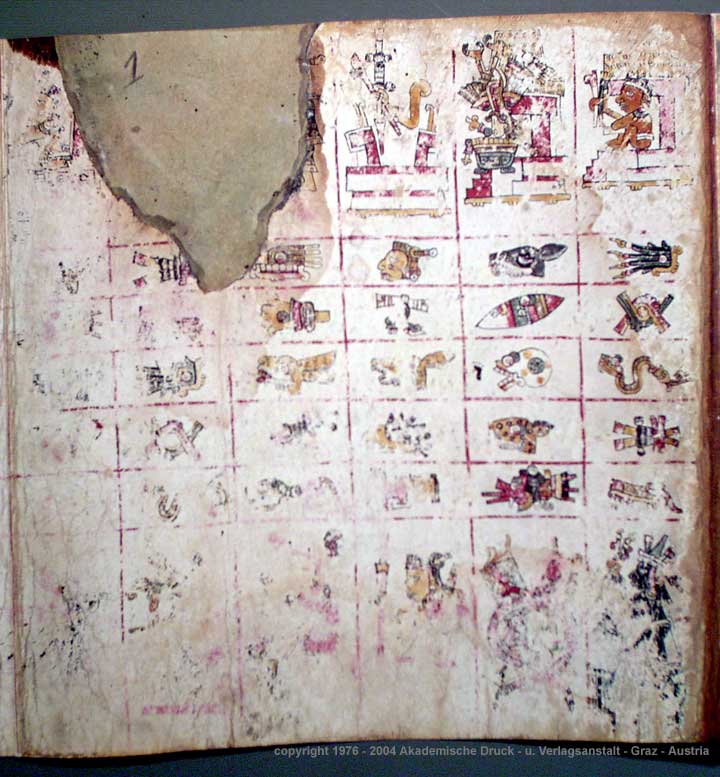 1
copyright 1976 - 2004 Akademische Druck - u. Verlagsanstalt - Graz - Austria